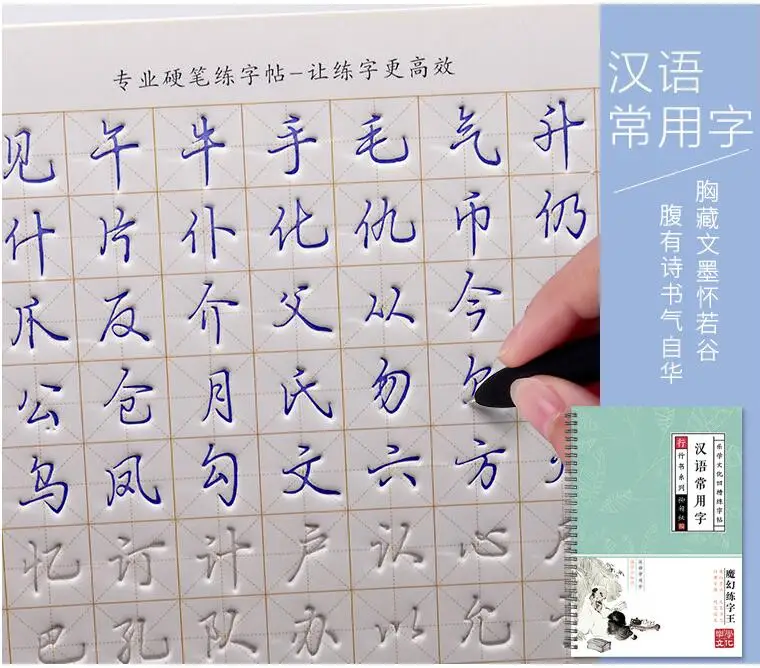 专业硬笔练字帖-让练字更高效
见 午 牛 手 毛 气 升
什 片 仆 化 仇 币 仍
爪 反 介 父 从 今
公 仓 月 氏 勿
乌 凤 勾 文 六 方
忆 订 计 户 认 心
巴 孔 队 办 以 允
汉语
常用字
胸藏文墨怀若谷
腹有诗书气自华
乐学文化凹槽练字帖
汉语常用字
行
行书系列
魔幻练字王